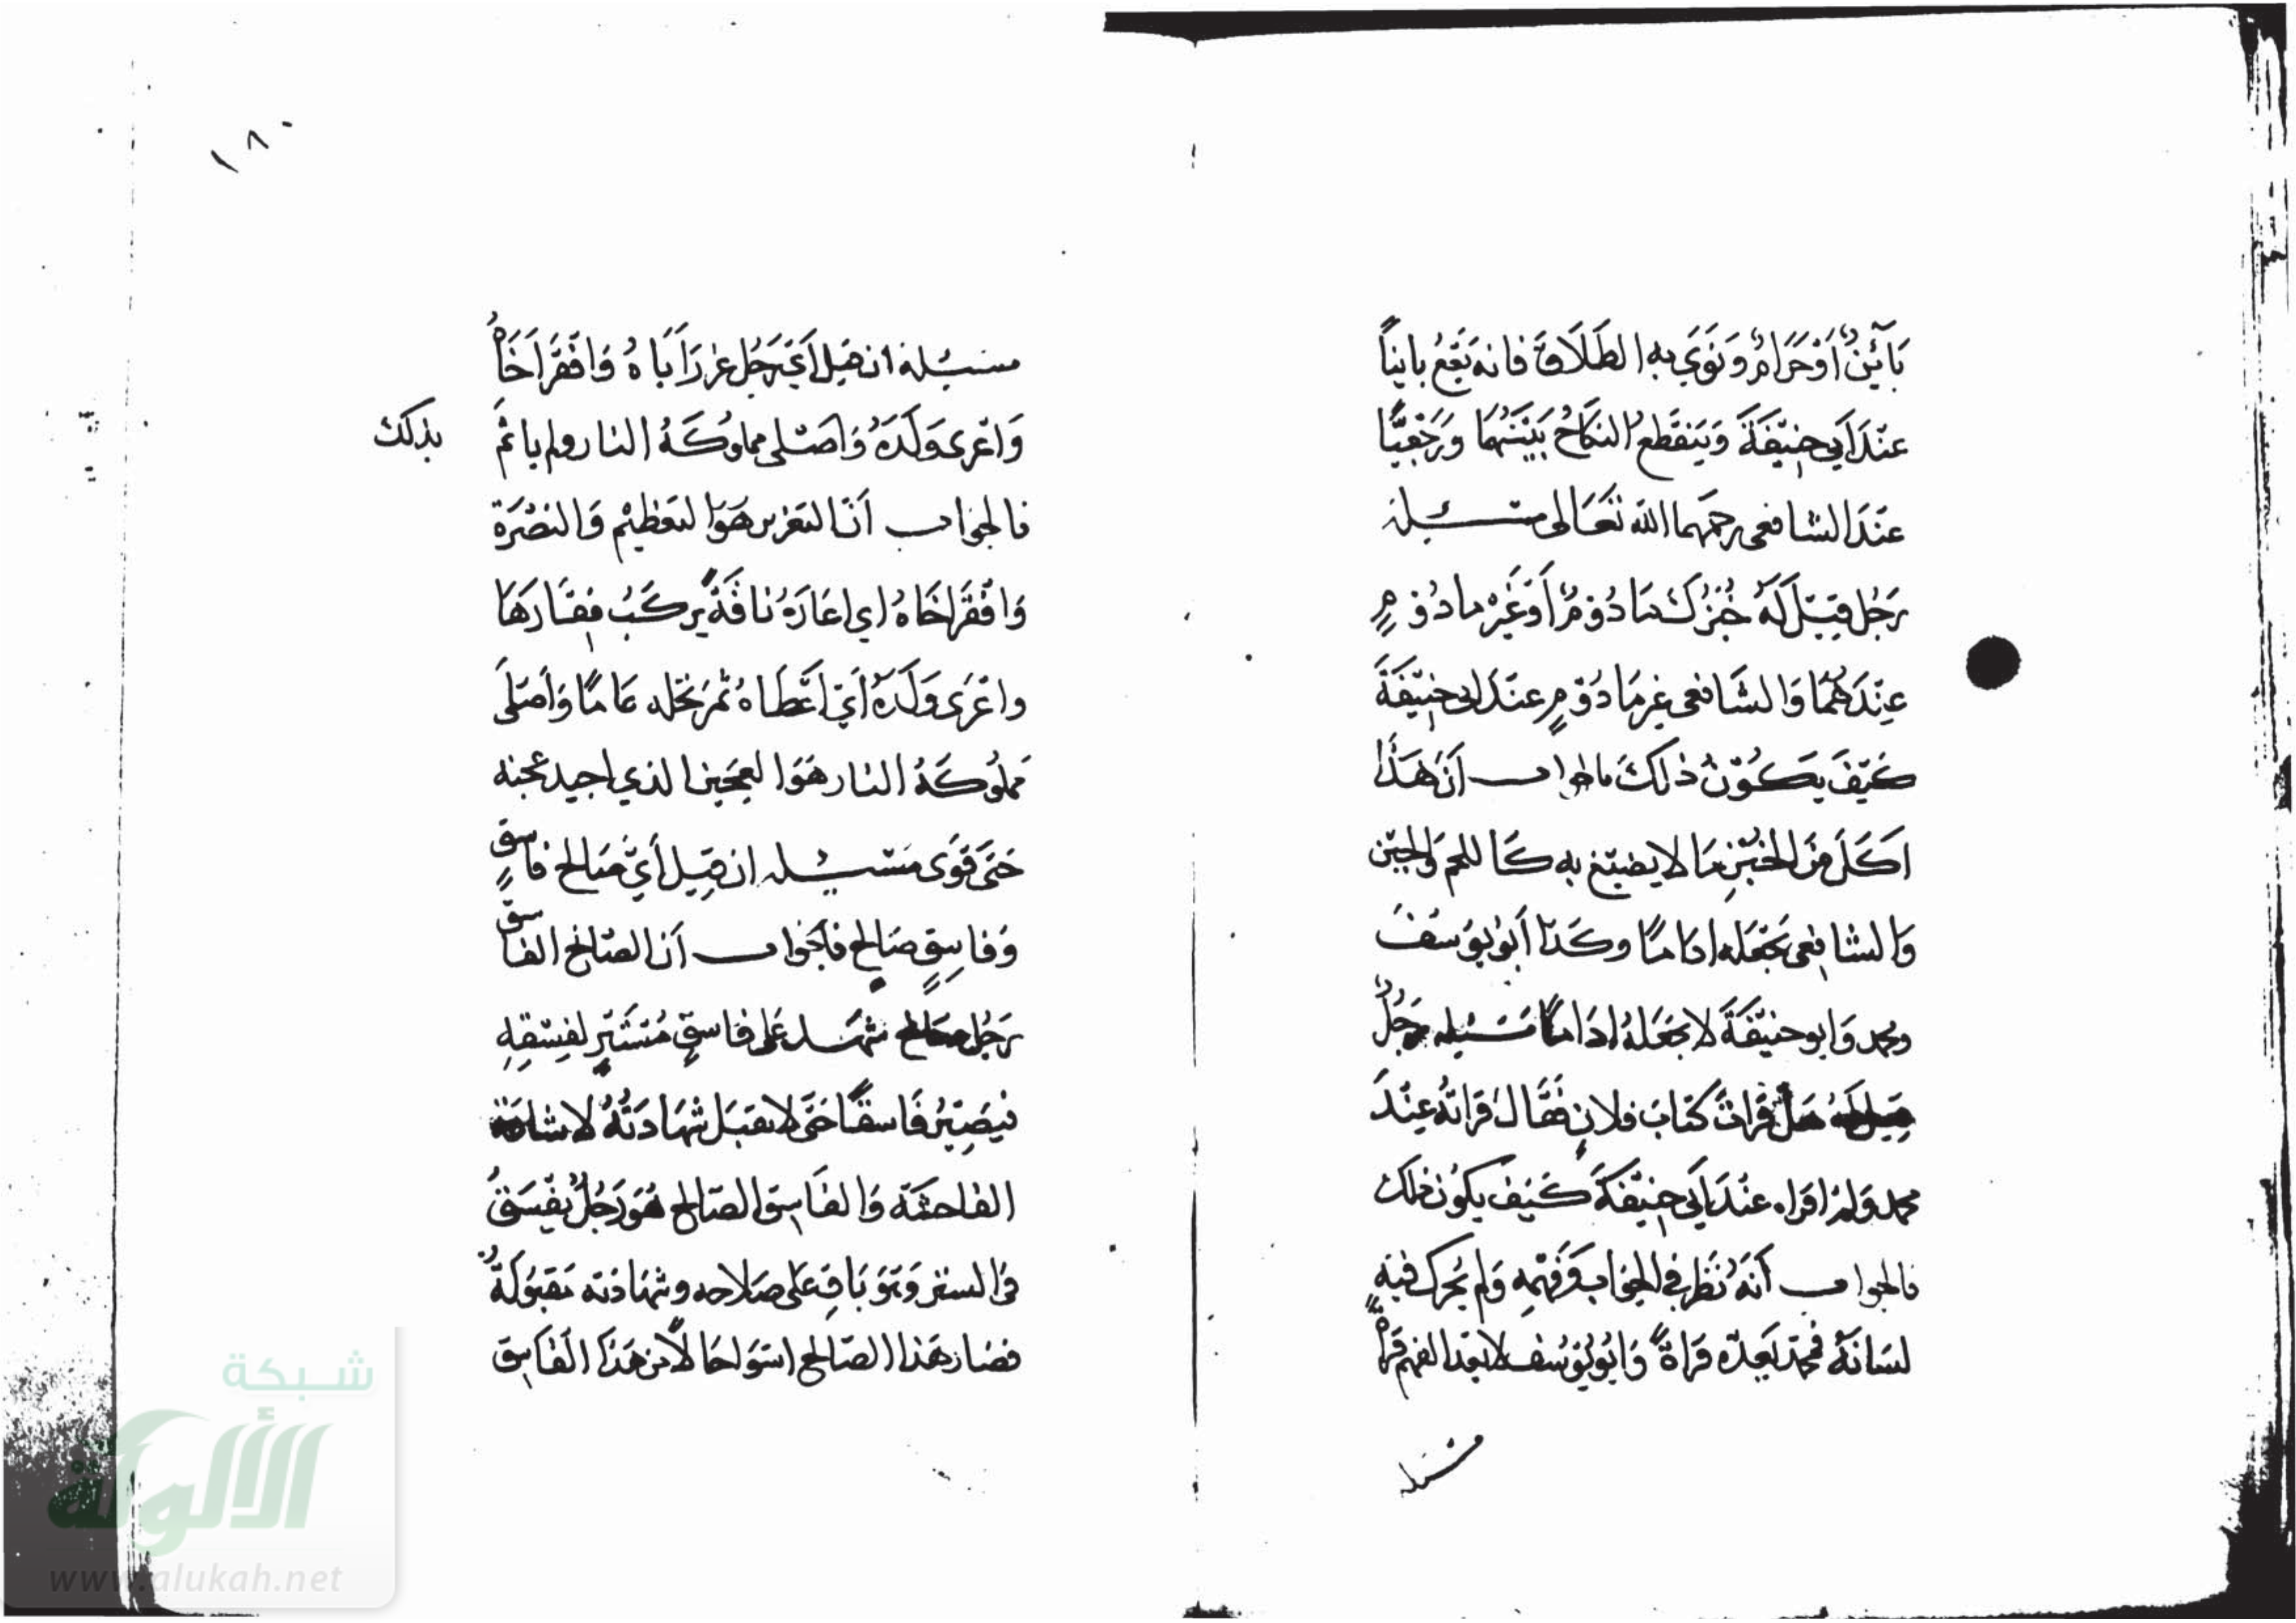 بَائِنٌ أَوْ حَرَامٌ وَنَوَى بِهِ الطَلَاقَ فانه يَقَعُ باينًا
عِنْدَ أَبِي حَنِيْفَةَ وَيَنقَطِعُ النِكَاحُ بَيْنَهُمَا وَرَجْعِيًّا
عِنْدَ الشافعى رحمهما الله تعَالى مسئلة
رَجُل قِيْلَ لَهُ خُبْزُكَ مَادُوْمٌ أَوْ غَيْرُ مادُوْمٍ
عِنْدَهُمَا وَالشَافعى غير مَادُوْمٍ عندَ ابى حَنِيْفَةَ
كَيْفَ يَكُوْنُ ذلِكَ فالجواب أَنَّ هَذَا
اكَلَ مِنَ الخُبْزِ مَا لا يصْبَغ به كَاللحم وَالجُبْن
وَالشافِعى يَجْعَله ادَامًا وكَذا أَبُو يُوْسُفَ
ومحمد وَابو حنيْفَةَ لا يَجْعَلهُ ادَامًا مسئله رَجُلٌ
قِيل لَهُ هَلْ قَرَاتَ كتَابَ فلانٍ فَقَالَ قَرَاتُهُ عِنْدَ
محمد وَلَمْ اقراه عنْدَ أَبِي حَنِيْفَةَ كَيْفَ يَكُونُ ذلك
فالجواب أَنَّهُ نَظَرَ فِي الكِتَابِ وَفَهِمَهِ وَلم يُحرك فيْهِ
لسَانَهُ فمحمّد يَعدّه قرَاةً وَابُو يُوْسُف لا يَعدّ الفهم قرَاةً
مسئله
١٨٠
مسئلة ان قيل أَيّ رَجُل عزرَ أَبَاهُ وَافْقَرَ اَخَاهُ
وَاعْرى وَلَدَهُ وَاصْلى مملوُكَهُ النار ولم ياثَمْ
بذلك
فالجواب أَنَّ التعزير هَوَ التعَظيْم وَالنصْرَة
وَافْقَرَ اخَاهُ اي اعَارَهُ نَاقَةً يركَبُ فِقَارهَا
واعْرَى وَلَدَهُ أَيْ اعْطَاهُ ثمرَ نَخْله عَامًا وَاَصْلَى
مملُوكَهُ النار هَوَ العَجِين الذي اجيد عجنه
حَتَّى قوَى مسئله ان قِيل أَيّ صَالحٍ فاسقٍ
وَفاسِقٍ صَالحٍ فالجَوَاب أنَ الصَّالح الفاسق
رَجُل صَالح شَهَد عَلى فاسقٍ مُسْتَتِرٍ لفِسْقِهِ
فيَصِيْرُ فَاسقًا حَتَّى لا تقبَل شَهَادَتُهُ لاشاعته
الفاحشَة وَالفَاسِق الصَالح هُوَ رَجُلٌ يَفْسَقُ
في السترِ وَهَوَ بَاقٍ عَلى صَلاحه وشَهَادَته مَقبُولَةٌ
فصَار هَذا الصَالح اسْوَا حَالًا من هَذا الفَاسِق
شبكة
الألوكة
www.alukah.net